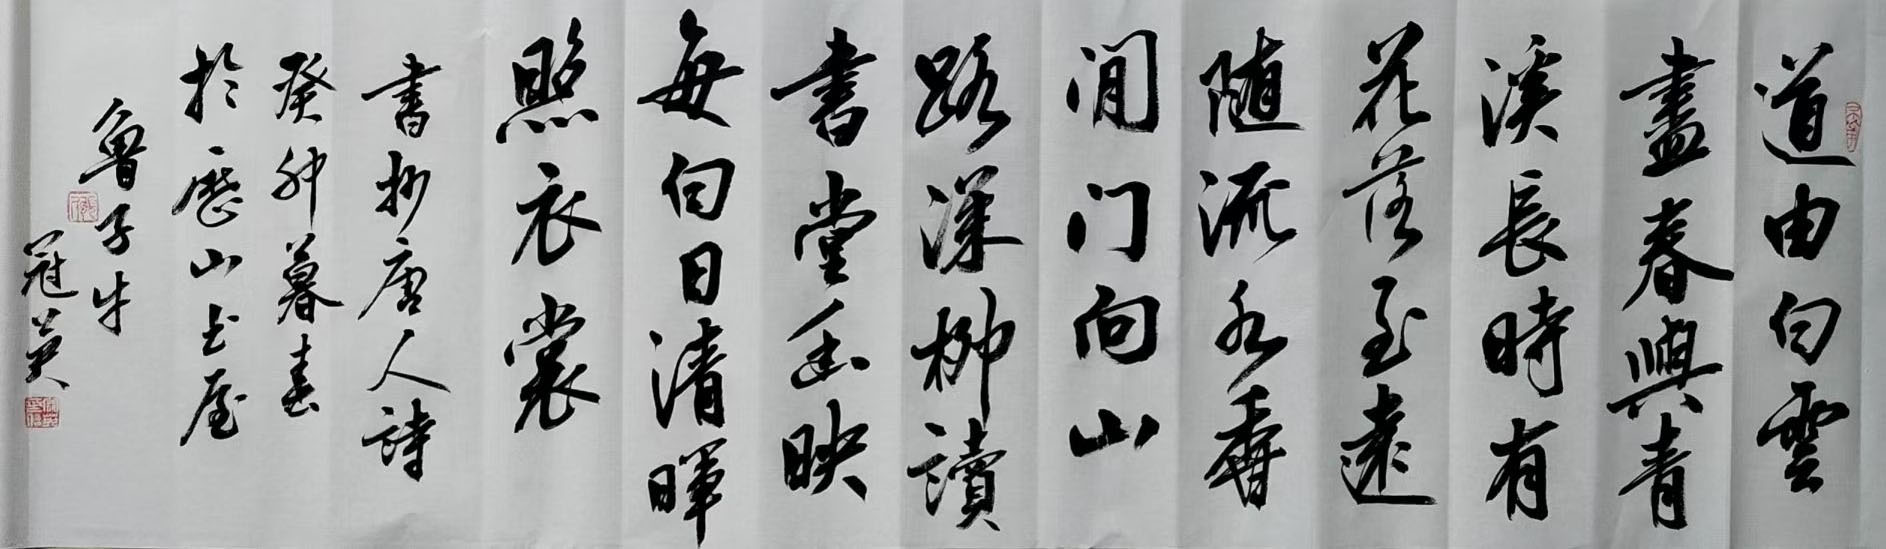 道由白雲
盡春與青
溪長時有
花落至遠
随流水香
閒门向山
路深柳讀
書堂幽映
每白日清暉
照衣裳
書抄唐人詩
癸卯暮春
於歷山土屋
魯子牛
冠英